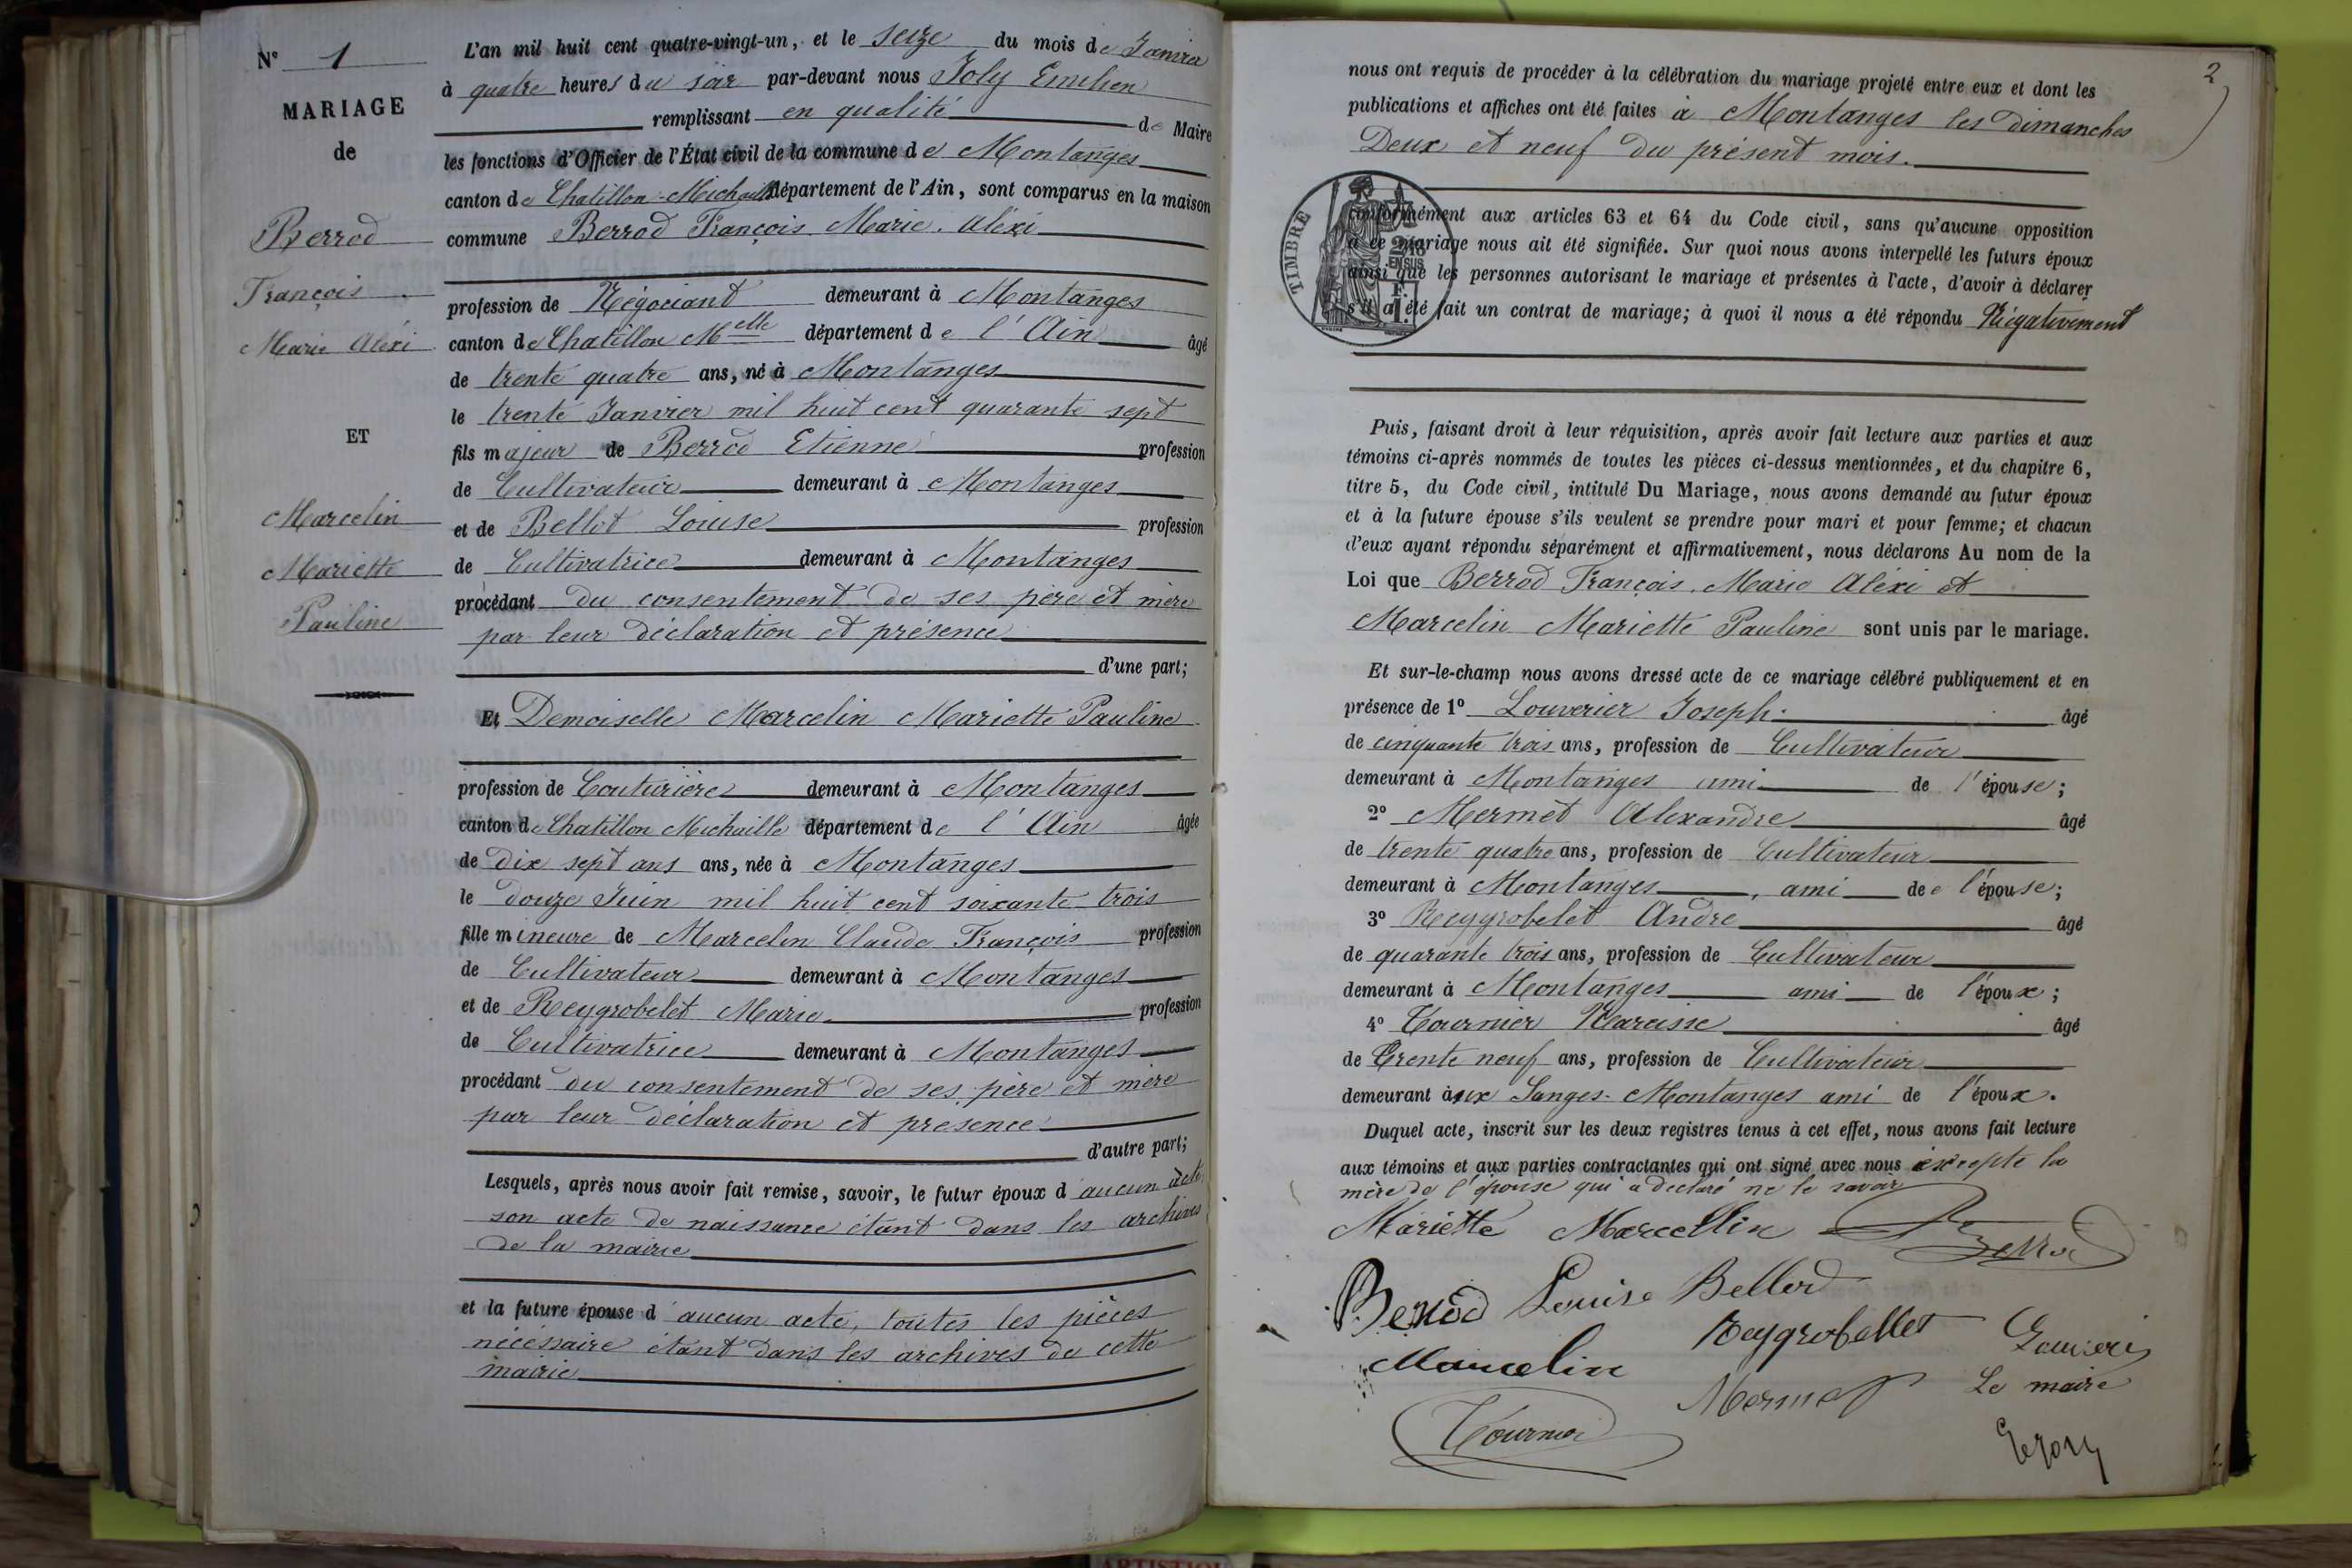 N° 1
MARIAGE
de
Berrod
François
Marie Aléxi
ET
Marcelin
Mariette
Pauline
L'an mil huit cent quatre-vingt-un, et le seize du mois de Janvier
à quatre heures du soir par-devant nous Joly Emilien
remplissant en qualité de Maire
les fonctions d'Officier de l'État civil de la commune de Montanges
canton de Chatillon-Michaille département de l'Ain, sont comparus en la maison
commune Berrod François Marie Aléxi
profession de Négociant demeurant à Montanges
canton de Chatillon Melle département de l'Ain âgé
de trente quatre ans, né à Montanges
le trente Janvier mil huit cent quarante sept
fils majeur de Berrod Etienne profession
de Cultivateur demeurant à Montanges
et de Bellot Louise profession
de Cultivatrice demeurant à Montanges
procédant du consentement de ses père et mère
par leur déclaration et présence
d'une part;
Et Demoiselle Marcelin Mariette Pauline
profession de Couturière demeurant à Montanges
canton de Chatillon Michaille département de l'Ain âgée
de dix sept ans ans, née à Montanges
le douze Juin mil huit cent soixante trois
fille mineure de Marcelin Claude François profession
de Cultivateur demeurant à Montanges
et de Reygrobelet Marie profession
de Cultivatrice demeurant à Montanges
procédant du consentement de ses père et mère
par leur déclaration et présence
d'autre part;
Lesquels, après nous avoir fait remise, savoir, le futur époux d'aucun acte
son acte de naissance étant dans les archives
de la mairie
et la future épouse d'aucun acte, toutes les pièces
nécéssaire étant dans les archives de cette
mairie
2
nous ont requis de procéder à la célébration du mariage projeté entre eux et dont les
publications et affiches ont été faites à Montanges les dimanches
Deux et neuf du présent mois.
TIMBRE
conformément aux articles 63 et 64 du Code civil, sans qu'aucune opposition
à ce mariage nous ait été signifiée. Sur quoi nous avons interpellé les futurs époux
ainsi que les personnes autorisant le mariage et présentes à l'acte, d'avoir à déclarer
s'il a été fait un contrat de mariage; à quoi il nous a été répondu Négativement
Puis, faisant droit à leur réquisition, après avoir fait lecture aux parties et aux
témoins ci-après nommés de toutes les pièces ci-dessus mentionnées, et du chapitre 6,
titre 5, du Code civil, intitulé Du Mariage, nous avons demandé au futur époux
et à la future épouse s'ils veulent se prendre pour mari et pour femme; et chacun
d'eux ayant répondu séparément et affirmativement, nous déclarons Au nom de la
Loi que Berrod François Marie Aléxi et
Marcelin Mariette Pauline sont unis par le mariage.
Et sur-le-champ nous avons dressé acte de ce mariage célébré publiquement et en
présence de 1° Louverier Joseph âgé
de cinquante trois ans, profession de Cultivateur
demeurant à Montanges ami de l'épouse;
2° Mermet Alexandre âgé
de trente quatre ans, profession de Cultivateur
demeurant à Montanges, ami de e l'épouse;
3° Reygrobelet Andre âgé
de quarante trois ans, profession de Cultivateur
demeurant à Montanges ami de l'époux;
4° Tournier Narcisse âgé
de Trente neuf ans, profession de Cultivateur
demeurant aux Sanges-Montanges ami de l'époux.
Duquel acte, inscrit sur les deux registres tenus à cet effet, nous avons fait lecture
aux témoins et aux parties contractantes qui ont signé avec nous excepte la
mère de l'épouse qui a déclaré ne le savoir
Mariette Marcellin Berrod
Berrod Louise Bellod
Reygrobellet
Marcelin
Mermet Le maire
Tournier